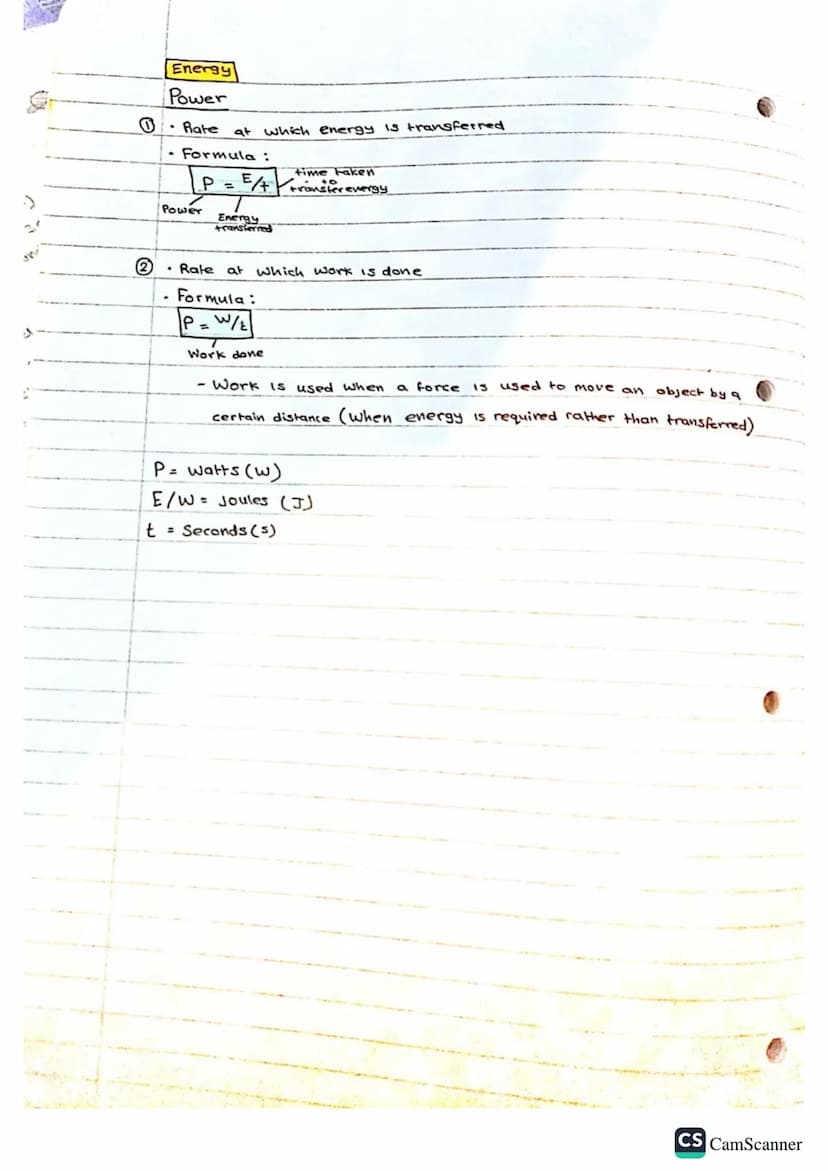 Energy
Power
① · Rate at which energy is transferred
· Formula :
P = E/t
time taken
to
transfer energy
Power
Energy
transferred
② · Rate at which work is done
· Formula :
P = W/t
Work done
- Work is used when a force is used to move an object by a
certain distance (when energy is required rather than transferred)
P = Watts (W)
E/W = Joules (J)
t = Seconds (s)
CS CamScanner